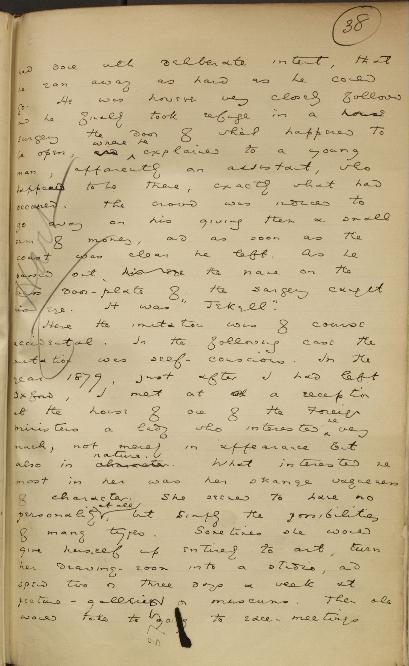 38
and done with deliberate intent, that
he ran away as hard as he could
go. He was however very closely followed
and he finally took refuge in a house
surgery the door of which happened to
be open, where he explained to a young
man, apparently an assistant, who
happened to be there, exactly what had
occurred. The crowd was induced to
go away on his giving them a small
sum of money, and as soon as the
coast was clear he left. As he
passed out, the name on the
brass door-plate of the surgery caught
his eye. It was "Jekyll".
Here the imitation was of course
accidental. In the following case the
imitation was self-conscious. In the
year 1879, just after I had left
Oxford, I met at a reception
at the house of one of the Foreign
ministers a lady who interested me very
much, not merely in appearance but
also in character nature. What interested me
most in her was her strange vagueness
of character. She seemed to have no
personality at all, but simply the possibilities
of many types. Sometimes she would
give herself up entirely to art, turn
her drawing-room into a studio, and
spend two or three days a week at
picture-galleries or museums. Then she
would take to going to race-meetings